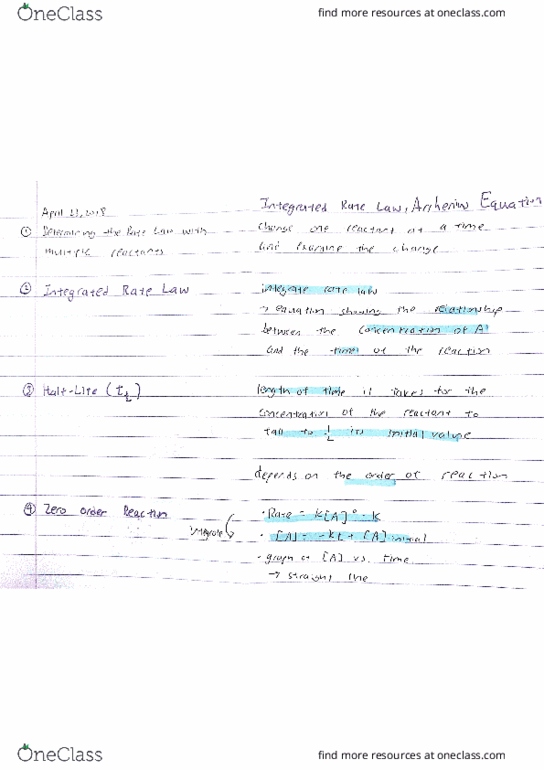 OneClass
find more resources at oneclass.com
Integrated Rate Law, Arrhenius Equation
April 23, 2018
① Determining the Rate Law with
multiple reactants
change one reactant at a time
and examine the change
② Integrated Rate Law
integrate rate law
→ equation showing the relationship
between the concentration of A
and the time of the reaction
③ Half-Life (t½)
length of time it takes for the
concentration of the reactant to
fall to ½ its initial value
depends on the order of reaction
④ Zero order Reaction
integrate
· Rate = K[A]⁰ = K
· [A] = -kt + [A] initial
· graph of [A] vs. time
→ straight line
OneClass
find more resources at oneclass.com